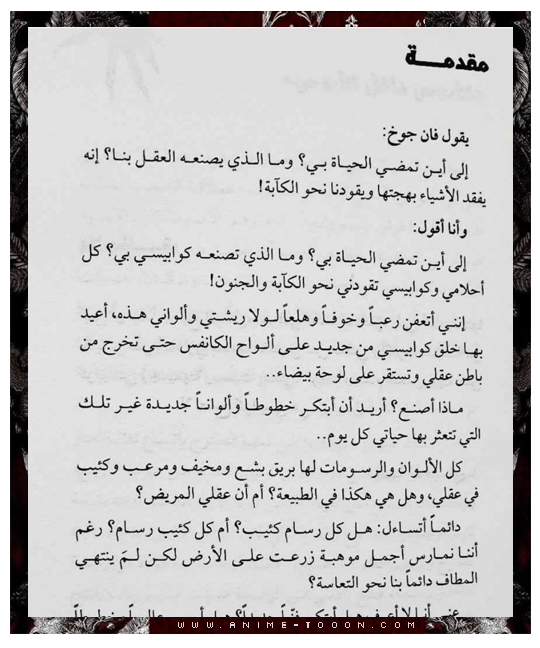 مقدمـــة
يقول فان جوخ:
إلى أيـن تمضـي الحيـاة بـي؟ ومـا الـذي يصنعـه العقـل بنـا؟ إنه
يفقد الأشياء بهجتها ويقودنا نحو الكآبة!
وأنا أقول:
إلى أيـن تمضي الحياة بي؟ ومـا الذي تصنعـه كوابيسـي بي؟ كل
أحلامي وكوابيسي تقودني نحو الكآبة والجنون!
إننـي أتعفـن رعبـاً وخوفـاً وهلعـاً لـولا ريشـتي وألواني هـذه، أعيد
بهـا خلق كوابيسـي من جديـد علـى ألـواح الكانفس حتـى تخرج من
باطن عقلي وتستقر على لوحة بيضاء..
مـاذا أصنـع؟ أريـد أن أبتكـر خطوطـاً وألوانـاً جديـدة غيـر تلـك
التي تتعثر بها حياتي كل يوم..
كل الألـوان والرسـومات لهـا بريق بشـع ومخيف ومرعـب وكئيب
في عقلي، وهل هي هكذا في الطبيعة؟ أم أن عقلي المريض؟
دائمـاً أتسـاءل: هـل كل رسـام كئيـب؟ أم كل كئيب رسـام؟ رغم
أننـا نمـارس أجمـل موهبـة زرعـت علـى الأرض لكـن لـمَ ينتهـي
المطاف دائماً بنا نحو التعاسة؟
WWW.ANIME-TOOON.COM